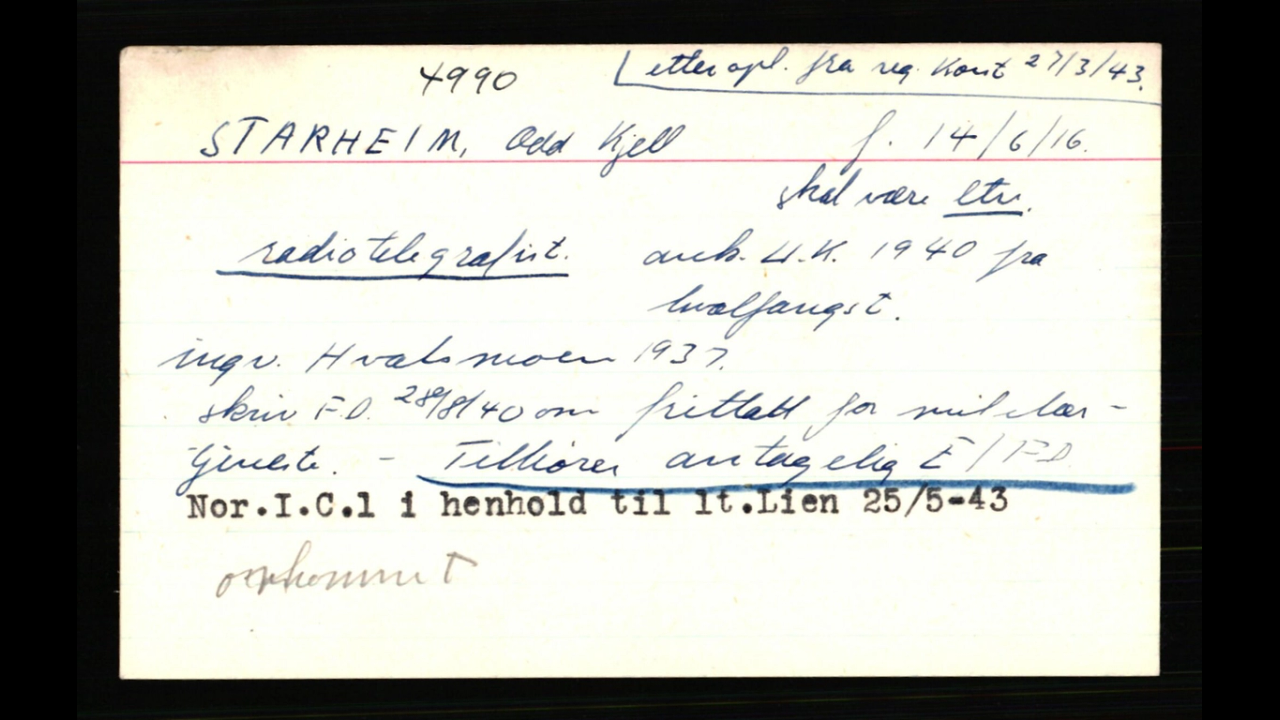 4990
etter opl. fra reg. kont 27/3/43.
STARHEIM, Odd Kjell f. 14/6/16.
skal være ltn.
radiotelegrafist. ank. U.K. 1940 fra
hvalfangst.
ingv. Hvalsmoen 1937.
skriv F.D. 28/8/40 om fritatt for militær-
tjeneste. - Tilhører antagelig E/FD
Nor.I.C.1 i henhold til lt.Lien 25/5-43
omkommet